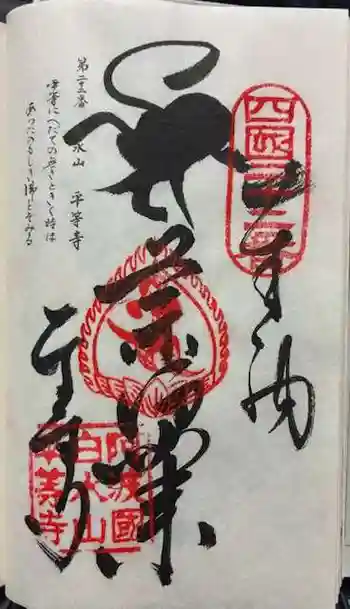 四国二十二番
奉納
平等寺
阿波國
白水山
平等寺
第二十二番 白水山 平等寺
平等にへだての無きときく時は
あらたのもしき佛とぞみる